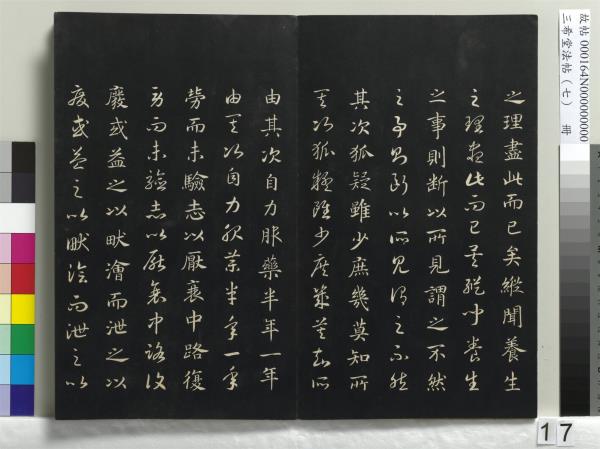 之理盡此而已矣縱聞養生
之理盡此而已矣縱聞養生
之事則斷以所見謂之不然
之事則斷以所見謂之不然
其次狐疑雖少庶幾莫知所
其次狐疑雖少庶幾莫知所
由其次自力服藥半年一年
由其次自力服藥半年一年
勞而未驗志以厭衰中路復
勞而未驗志以厭衰中路復
廢或益之以畎澮而泄之以
廢或益之以畎澮而泄之以
故帖 000164N000000000
三希堂法帖（七） 冊
17